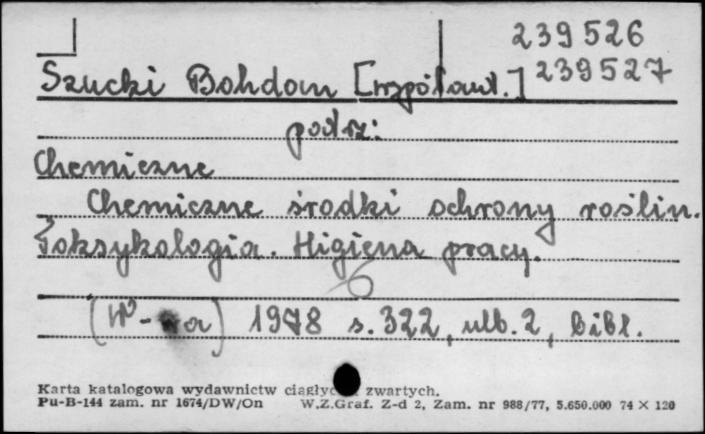 239526
Szucki Bohdan [współaut.] 239527
patrz:
Chemiczne
Chemiczne środki ochrony roślin.
Toksykologia. Higiena pracy.
6
(W-wa) 1978 s. 322, ulb. 2, bibl.
Karta katalogowa wydawnictw ciągłych zwartych.
Pu-B-144 zam. nr 1674/DW/On W.Z.Graf. Z-d 2, Zam. nr 988/77, 5.650.000 74 X 120